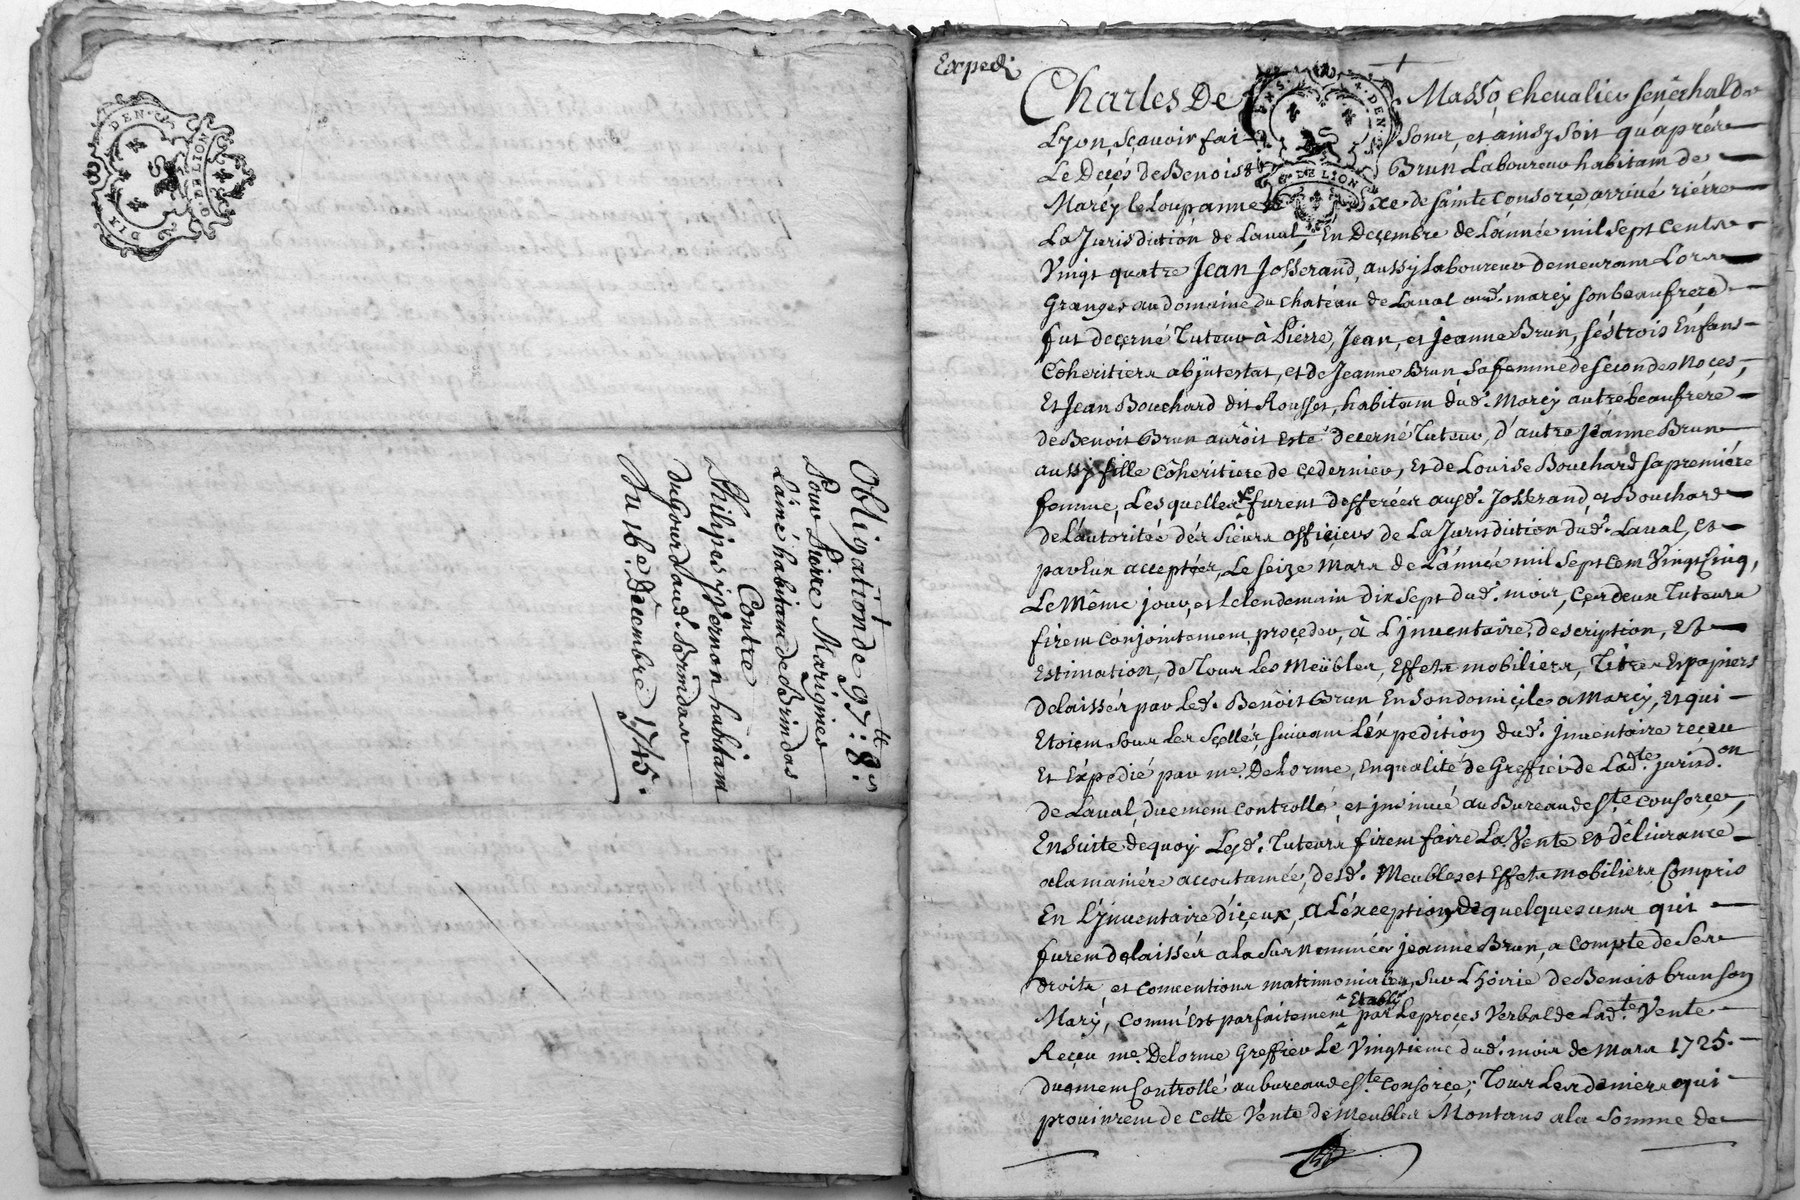 DIX DEN.
G. DE LION
Obligation de 97 tt: 8 s.
Pour Pierre Marignier
L'ainé habitant de Brindas
Contre
Philipes Vernon habitant
du Gourd aud. Brindas
Du 16e. Décembre 1745.
Expedié
Charles De Masso chevalier senéchal de
Lyon, sçavoir fai sons, et ainsy soit qu'aprés
Le Decés de Benoist Brun Laboureur habitant de
Marcÿ le Loup, annexe de sainte Consorçe arrivé riérre
La Jurisdiction de Laval, En Deçembre de L'année mil sept Cents
Vingt quatre Jean Josserand, aussÿ Laboureur demeurant Lors
Granger au domaine du chatéau de Laval aud. marcÿ son beaufrere
fut deçerné Tuteur à Pierre, Jean, et Jeanne Brun, sés trois Enfans
Côheritiers abjntestat, et de Jeanne Brun, sa femme de secondes Noçes,
Et Jean Bouchard dit Rousset, habitant dud. Marcÿ autre beaufrere
de Benoit Brun auroit esté decerné Tuteur, d'autre Jeanne Brun
aussÿ fille Côheritiere de ce dernier, Et de Louise Bouchard sa premiére
femme, Lesquelles furent defferées ausd. Josserand et Bouchard
de L'autorité dés Sieurs officiers de La Jurisdiction dud. Laval, et
par Eux acceptées, Le seize Mars de L'année mil sept cent Vingt Cinq,
Le Même jour, et le lendemain dix sept dud. mois, Ces deux Tuteurs
firent conjointement, proçeder, à L'jnventaire, description, Et
Estimation, de Tous Les Meübles, Effets mobiliers, Titres Et papiers
delaissés par Led. Benôit Brun En son domiçile a Marcÿ, Et qui
Etoient sous Les Sçellés, suivant L'éxpedition dud. jnventaire reçeu
Et Expedié par me. Delorme, En qualité de Greffier de Lad.te jurisd.on
de Laval, duement controllé, et jnsinué au Bureau de Ste consorçe,
Ensuite de quoÿ Lesd. Tuteurs firent faire La Vente Et délivrance
a la maniére accoutumée, desd. Meubles et Effets mobiliers Compris
En L'jnventaire d'içeux, A L'éxception de quelques uns qui
furent delaissés a la surnommée jeanne Brun, a compte de Ses
droits, et conventions matrimoniales, sur L'hoirie de Benoit brun son
Marÿ, comm' Est parfaitement Etablÿ par Le proçes Verbal de Lad.te Vente
Reçeu me. Delorme Greffier Le Vingtieme dud. mois de Mars 1725.
duement Controllé au bureau de Ste. Consorçe; Tous Les deniers qui
provinrent de Cette Vente de Meubles Montans a la Somme de